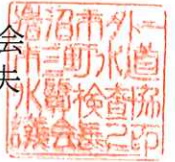 会
夫
岩沼市外二
市三町水道
水質検査協
議会長之印